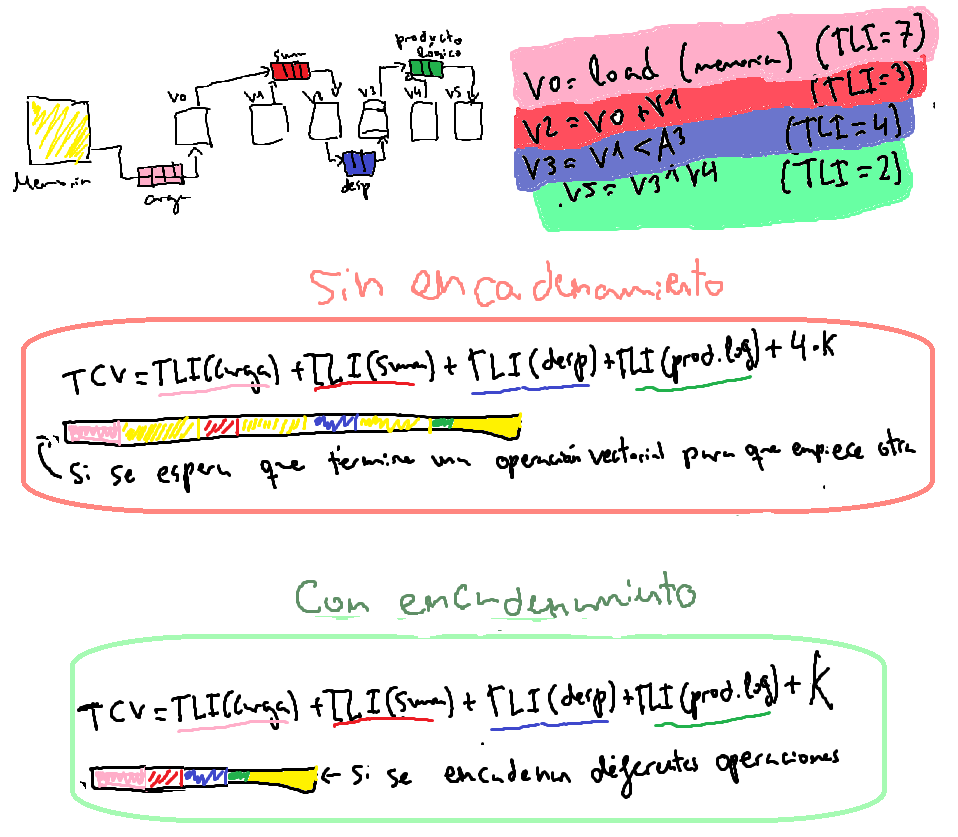 suma
producto
lógico
V0
V1
V2
V3
V4
V5
Memoria
carga
desp
V0 = load (memoria) (TLI=7)
V2 = V0 + V1 (TLI=3)
V3 = V1 < A3 (TLI=4)
V5 = V3 ^ V4 (TLI=2)
Sin encadenamiento
TCV = TLI(carga) + TLI(Suma) + TLI(desp) + TLI(prod.log) + 4·K
Si se espera que termine una operación vectorial para que empiece otra
Con encadenamiento
TCV = TLI(carga) + TLI(Suma) + TLI(desp) + TLI(prod.log) + K
← Si se encadenan diferentes operaciones